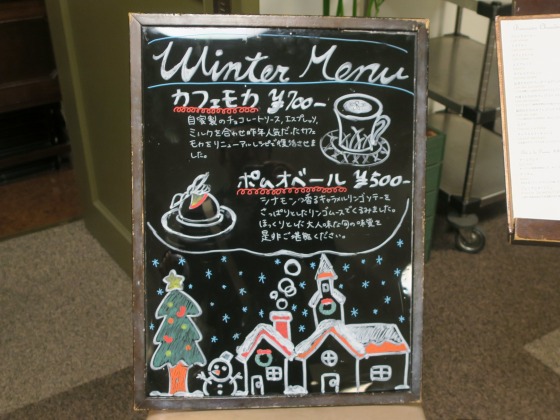 Winter Menu
カフェモカ ¥700-
自家製のチョコレートソース、エスプレッソ、
ミルクを合わせ昨年人気だったカフェ
モカをリニューアルレシピで復活させま
した。
ポムオベール ¥500-
シナモンの香るキャラメルリンゴソテーを
さっぱりとしたリンゴムースでくるみました。
ほっくりとした大人味な旬の味覚を
是非ご堪能ください。